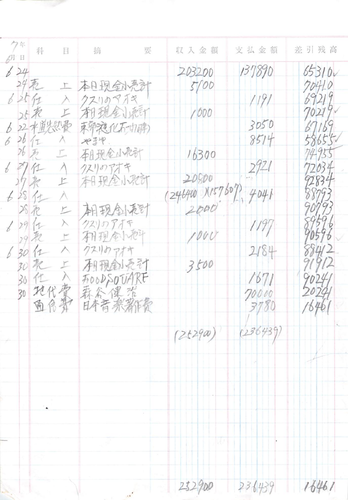 科目 摘要 収入金額 支払金額 差引残高
6 24 203200 137890 65310
24 売上 本日現金小売計 5100 70410
6 25 仕入 クスリのアオキ 1191 69219
25 売上 本日現金小売計 1000 70219
6 22 3050 67169
6 26 仕入 やまや 8514 58655
26 売上 16300 74955
6 27 仕入 クスリのアオキ 2921 72034
27 売上 本日現金小売計 20800 92834
6 28 仕入 (246400 4041 88793
28 売上 本日現金小売計 2000 90793
6 29 仕入 クスリのアオキ 1197 89596
29 売上 本日現金小売計 1000 90596
6 30 仕入 クスリのアオキ 2184 88412
30 売上 本日現金小売計 3500 91912
30 仕入 FOOD SQUARE 1671 90241
30 地代費 70000 20241
日本音楽著作費 3780 16461
(252900) (236439)
252900 236439 16461